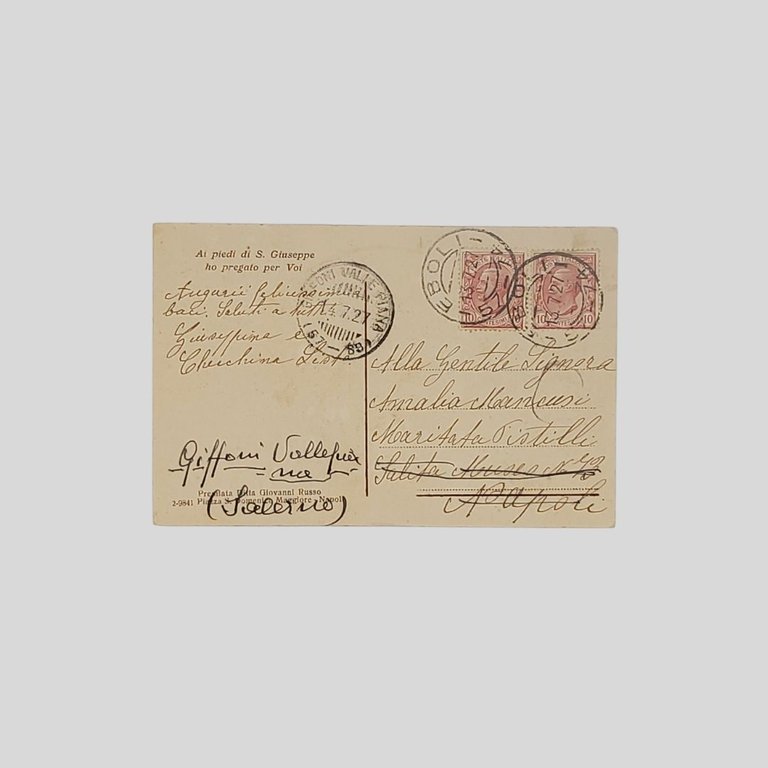 Ai piedi di S. Giuseppe
ho pregato per Voi
Augurii felicissimi
baci. Saluti a tutti
Giuseppina e
Checchina
Giffoni Vallepia
na
(Salerno)
Premiata Ditta Giovanni Russo
2-9841 Piazza S. Domenico Maggiore - Napoli
GIFFONI VALLE PIANA
14.7.27
EBOLI
EBOLI
13.7.27
10
10
Alla Gentile Signora
Amalia Mancusi
Maritata Pistilli
Salita Museo N.
Napoli